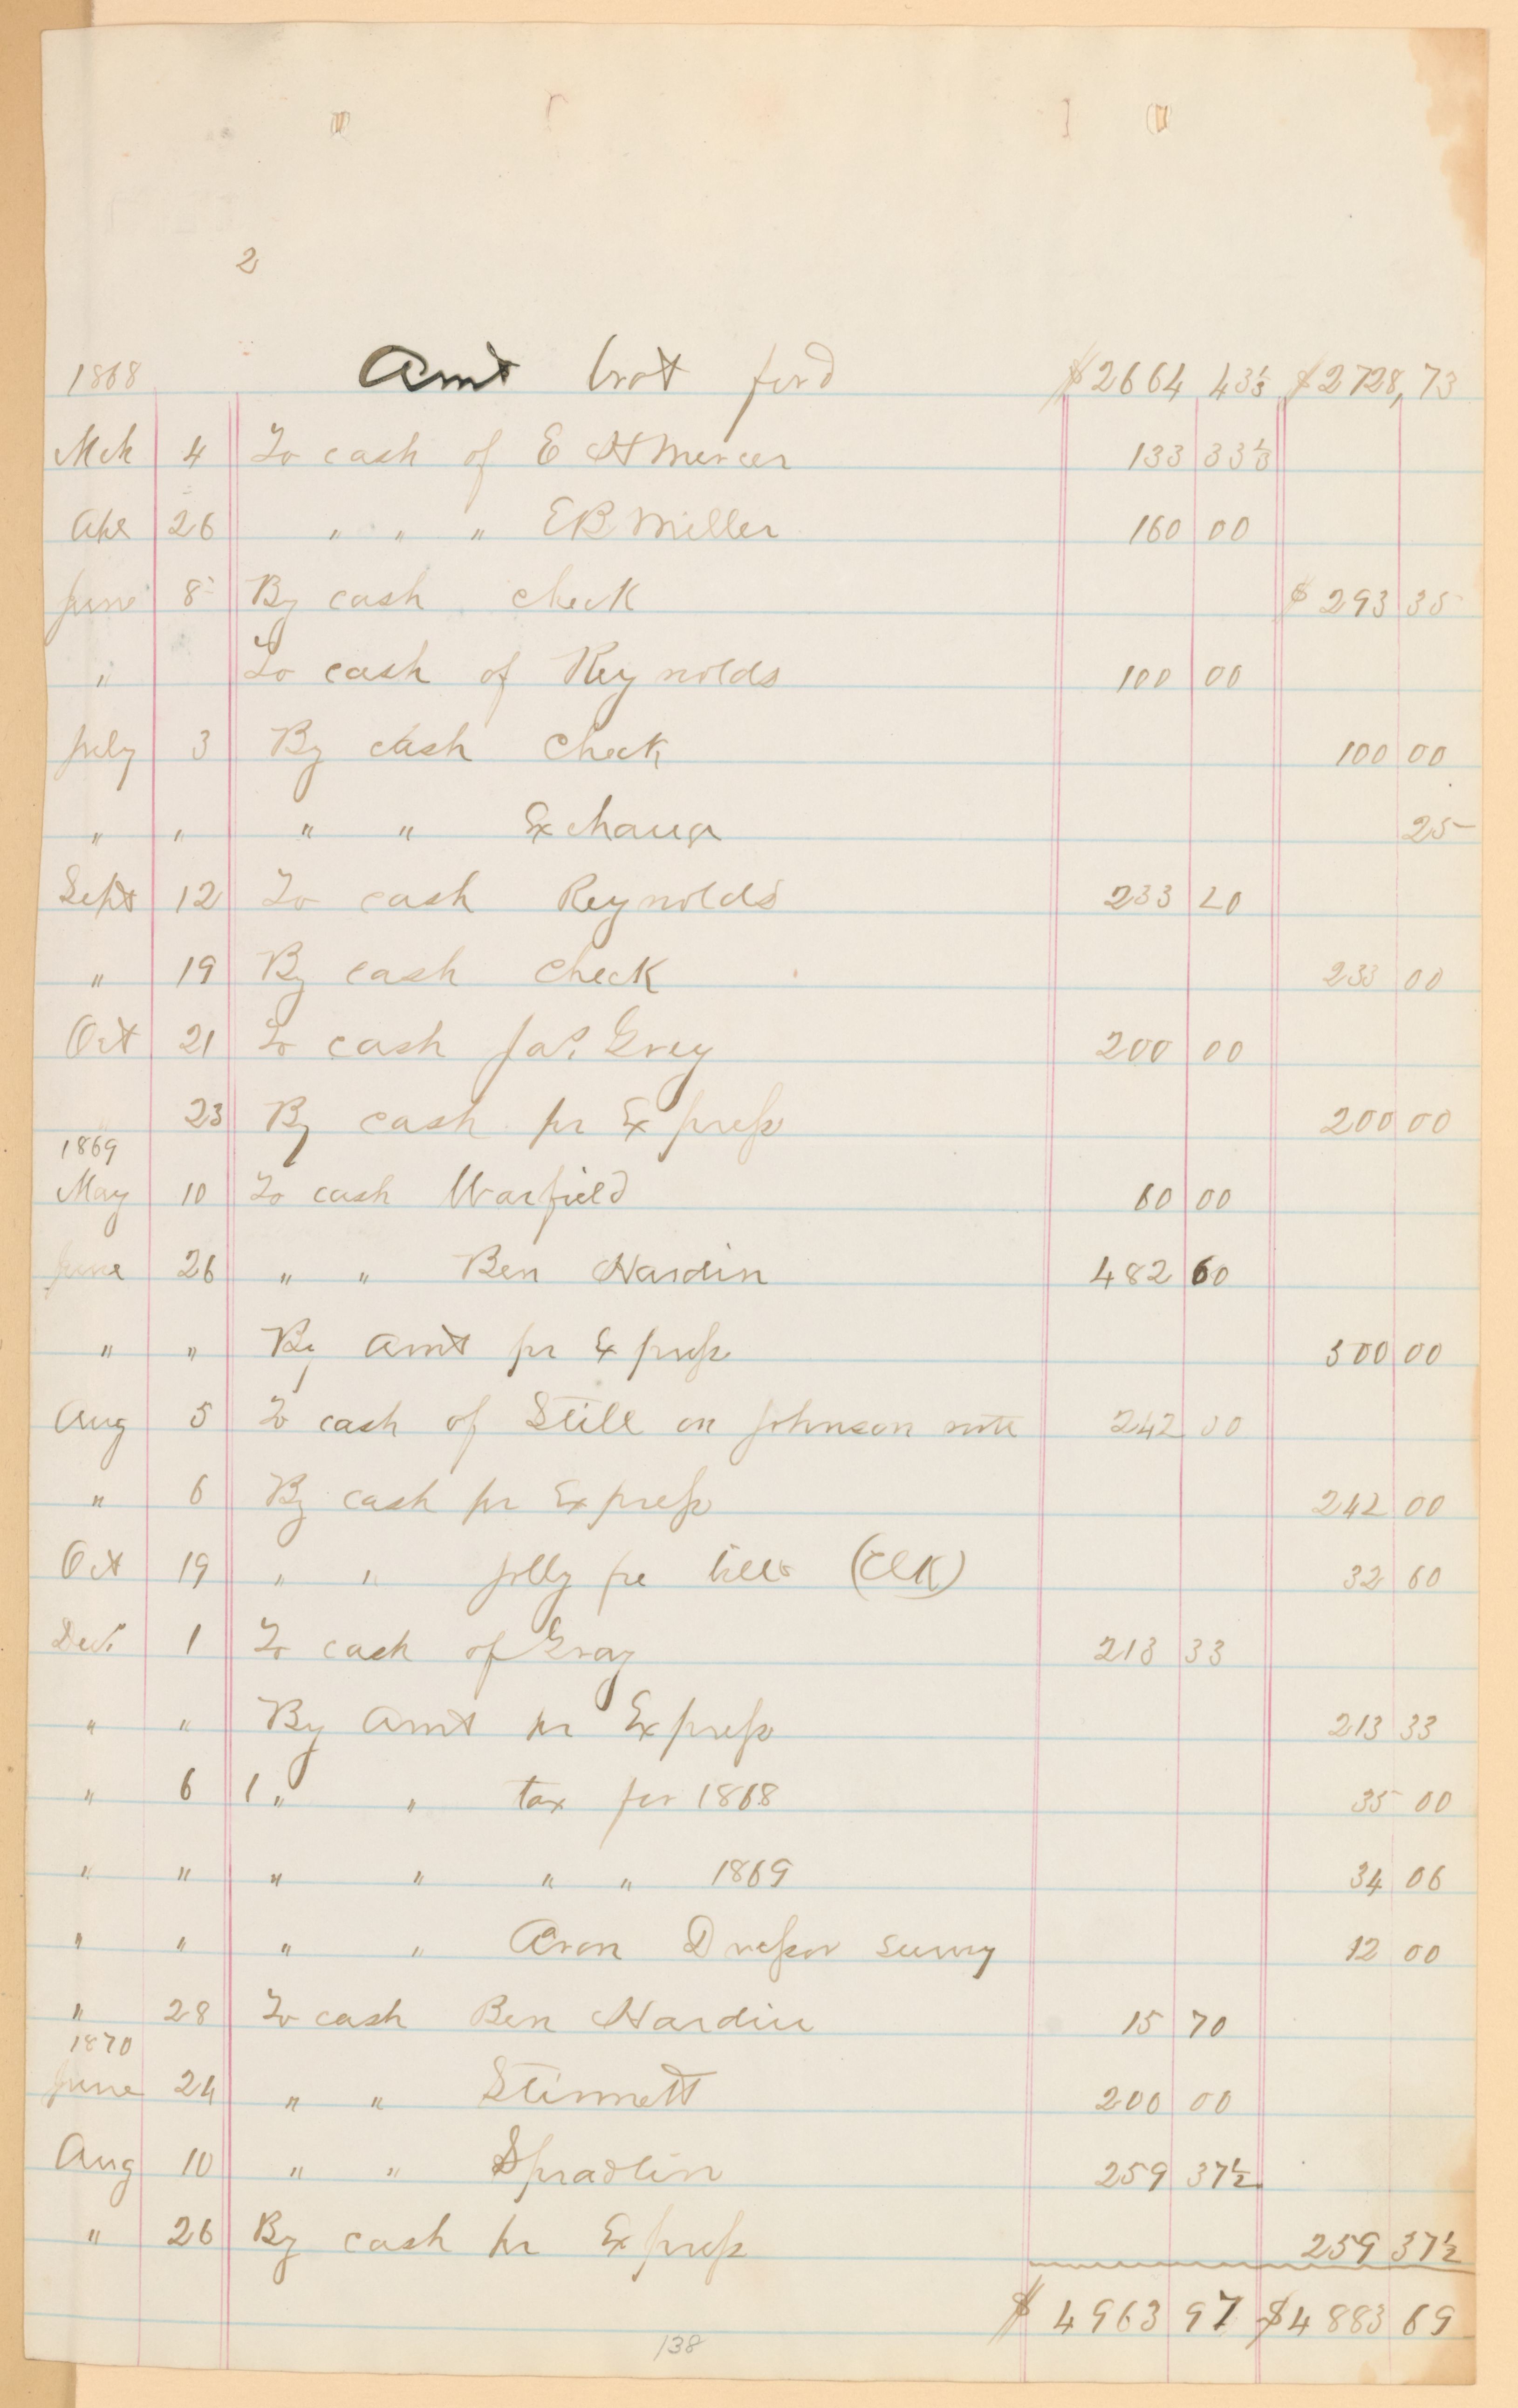 2
1868 Amt brot ford $2664 43⅓ $2728,73
Mch 4 To cash of E H Mercer 133 33⅓
Apl 26 " " " E B Miller 160 00
June 8 By cash check $293 35
" To cash of Reynolds 100 00
July 3 By cash check 100 00
" " " " Exchange 25
Sept 12 To cash Reynolds 233 20
" 19 By cash check 233 00
Oct 21 To cash Jas. Grey 200 00
23 By cash pr Express 200 00
1869
May 10 To cash Warfield 60 00
June 26 " " Ben Hardin 482 60
" " By Amt pr Express 500 00
Aug 5 To cash of Still on Johnson note 242 00
" 6 By cash pr Express 242 00
Oct 19 " " Jolly fee bill (Clk) 32 60
Dec. 1 To cash of Gray 213 33
" " By Amt pr Express 213 33
" 6 " " tax for 1868 35 00
" " " " " " 1869 34 06
" " " " 12 00
" 28 To cash Ben Hardin 15 70
1870
June 24 " " Stinnett 200 00
Aug 10 " " Spradlin 259 37½
" 26 By cash pr Express 259 37½
$4963 97 $4883 69
138